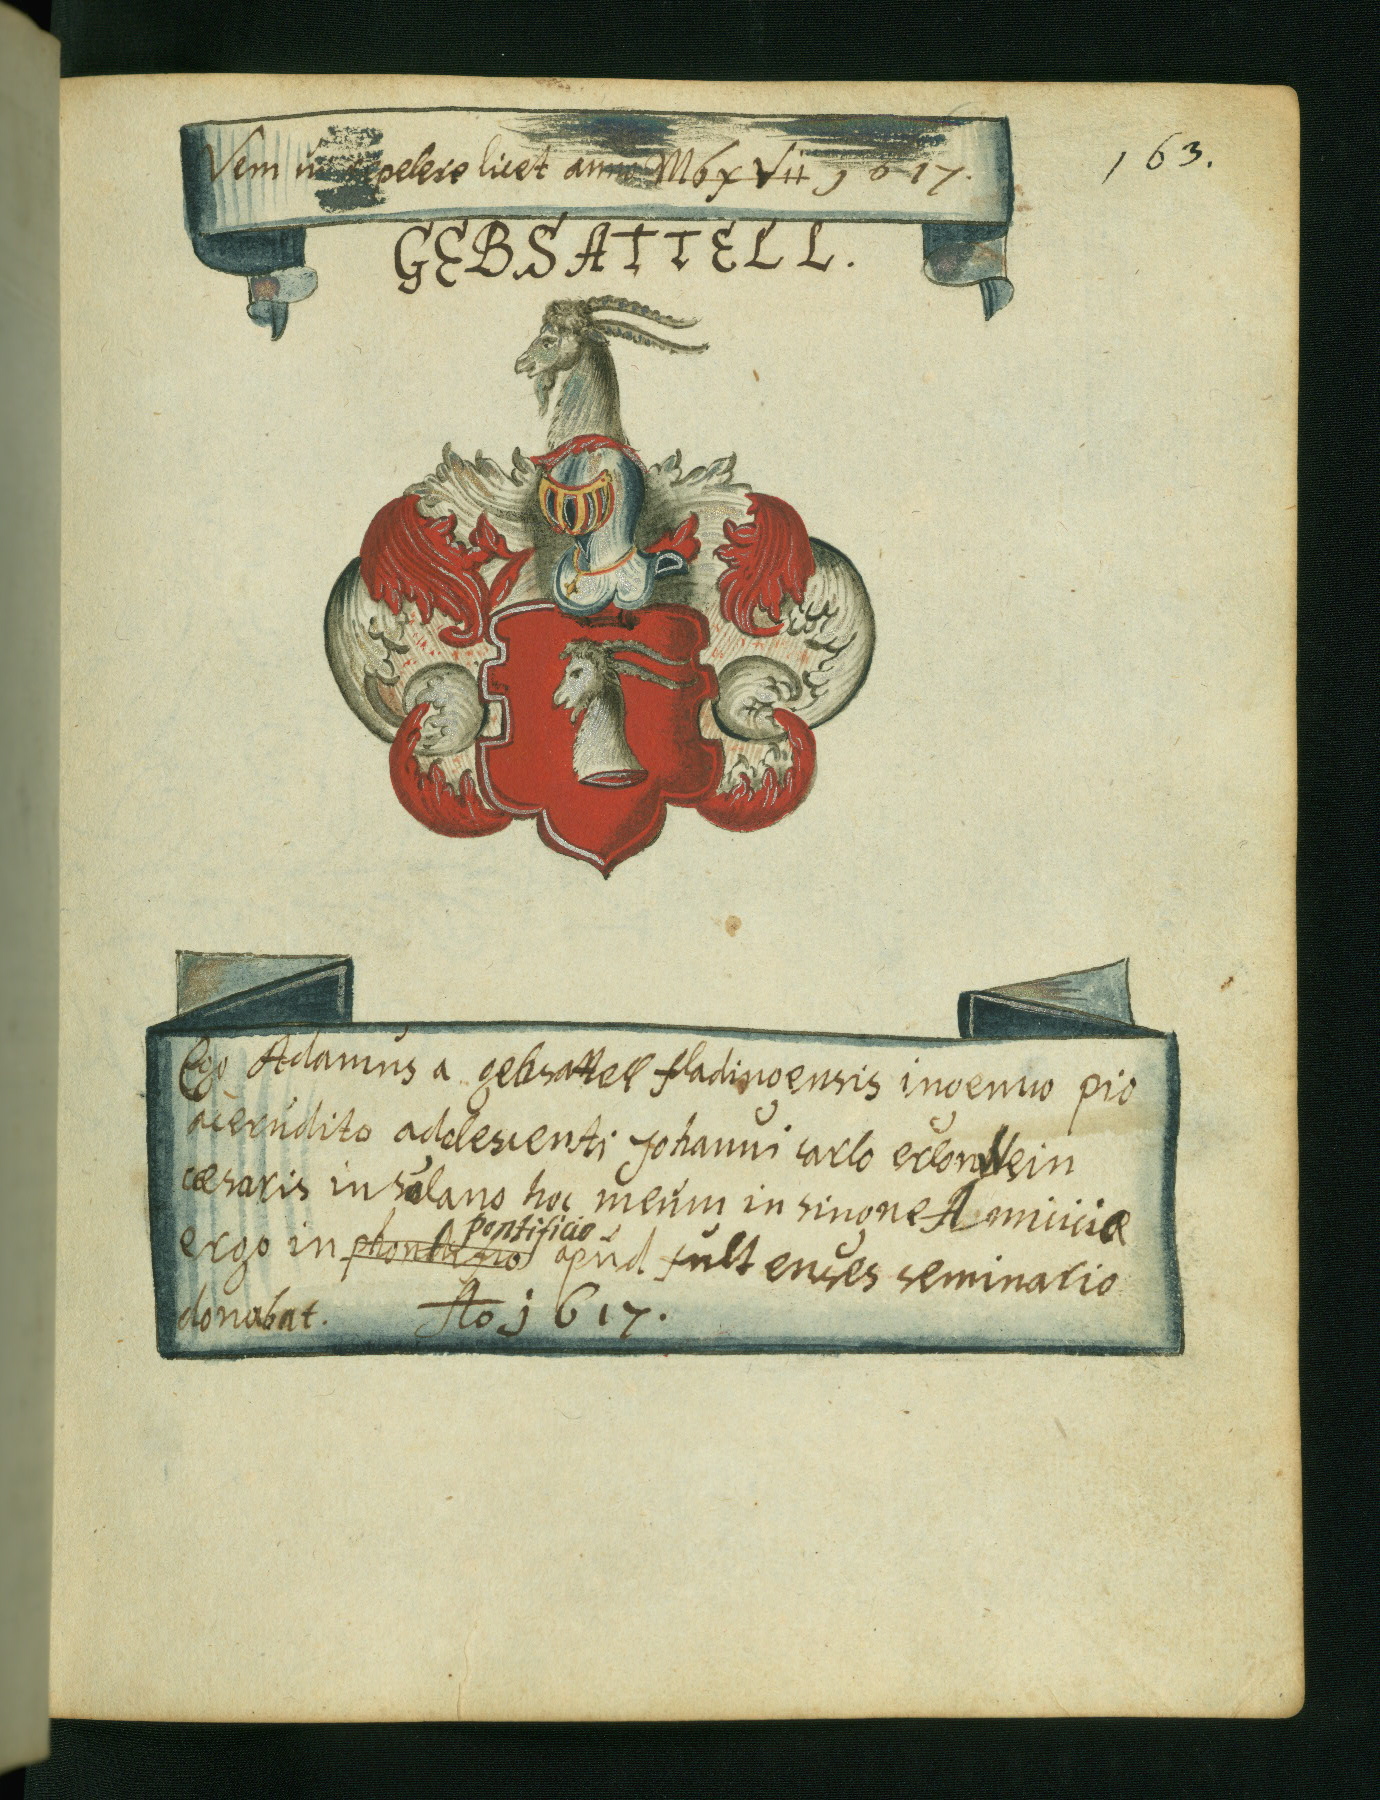 Vem licet anno M6xVii 1617.
163.
GEBSATTELL.
Ego Adamus a gebsattel fladingensis ingenuo pio
ac erudito adolescenti Johanni carlo erlenstein
cæsaris insulano hoc meum insigne Amiciciæ
ergo in pontificio apud fultenses seminario
donabat. Ao j617.